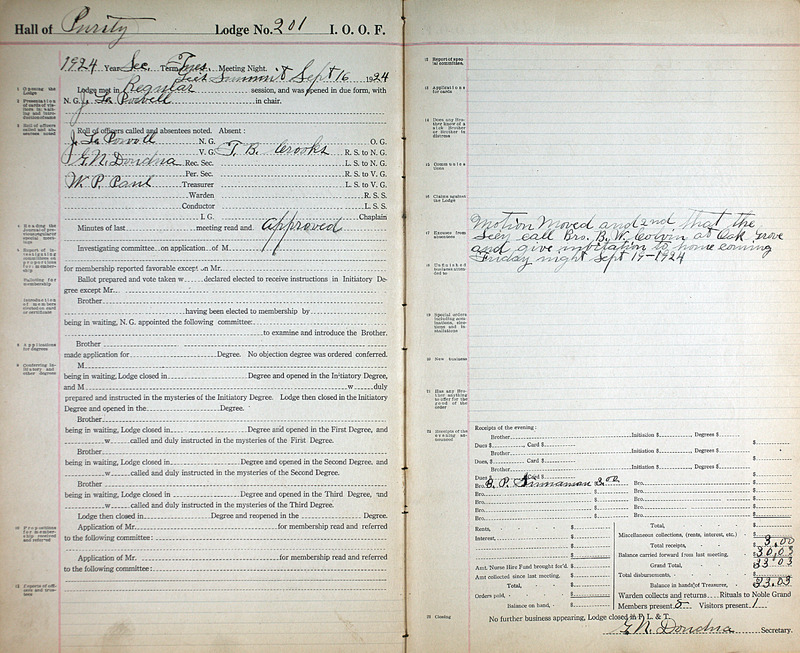 Hall of Purity Lodge No. 201 I. O. O. F.
1924 Year Sec. Term Tues. Meeting Night.
Lees Summit Sept 16 1924
1 Opening the Lodge
Lodge met in Regular session, and was opened in due form, with
N. G. J. La Powell in chair.
Roll of officers called and absentees noted. Absent:
J. La Powell N. G. O. G.
V. G. T. B. Crooks R. S. to N. G.
G. N. Dondna Rec. Sec. L. S. to N. G.
Per. Sec. R. S. to V. G.
W. P. Paul Treasurer L. S. to V. G.
Warden R. S. S.
Conductor L. S. S.
I. G. Chaplain
Minutes of last meeting read and approved
Investigating committee on application of M
for membership reported favorable except on Mr.
Ballot prepared and vote taken w declared elected to receive instructions in Initiatory De-
gree except Mr.
Brother
having been elected to membership by
being in waiting, N. G. appointed the following committee:
to examine and introduce the Brother.
8 Applications for degrees
Brother
made application for Degree. No objection degree was ordered conferred.
M
being in waiting, Lodge closed in Degree and opened in the Initiatory Degree,
and M w duly
prepared and instructed in the mysteries of the Initiatory Degree. Lodge then closed in the Initiatory
Degree and opened in the Degree.
Brother
being in waiting, Lodge closed in Degree and opened in the First Degree, and
w called and duly instructed in the mysteries of the First Degree.
Brother
being in waiting, Lodge closed in Degree and opened in the Second Degree, and
w called and duly instructed in the mysteries of the Second Degree.
Brother
being in waiting, Lodge closed in Degree and opened in the Third Degree, and
w called and duly instructed in the mysteries of the Third Degree.
Lodge then closed in Degree and reopened in the Degree.
Application of Mr. for membership read and referred
to the following committee:
Application of Mr. for membership read and referred
to the following committee:
12 Report of special committee.
13 Applications for cards
14 Does any Brother know of a sick Brother or Brother in distress
15 Communications
16 Claims against the Lodge
Motion Moved and 2nd that the
Secy call Bro. B. W. Colvin at Oak Grove
and give invitation to home coming
Friday night Sept 19-1924
18 Unfinished business attended to
20 New business
21 Has any Brother anything to offer for the good of the order
Receipts of the evening:
Brother Initiation $ Degrees $
Dues $ Card $ $
Brother Initiation $ Degrees $
Dues, $ Card $ $
Brother Initiation $ Degrees $
Dues $ Card $ $
Bro. 3.00 Bro. $
Bro. $ Bro. $
Bro. $ Bro. $
Bro. $ Bro. $
Bro. $ Bro. $
Rents, $ Total, $
Interest, $ Miscellaneous collections, (rents, interest, etc.) $
Total receipts, $ 3.00
Balance carried forward from last meeting, $ 30.03
Grand Total, $ 33.03
Amt. Nurse Hire Fund brought for'd. $ Total disbursements, $
Amt collected since last meeting, $ Balance in hands of Treasurer, $ 33.03
Total, $ Warden collects and returns Rituals to Noble Grand
Orders paid, $ Members present 5 Visitors present 1
Balance on hand, $
23 Closing No further business appearing, Lodge closed in F. L. & T.
G. N. Dondna Secretary.